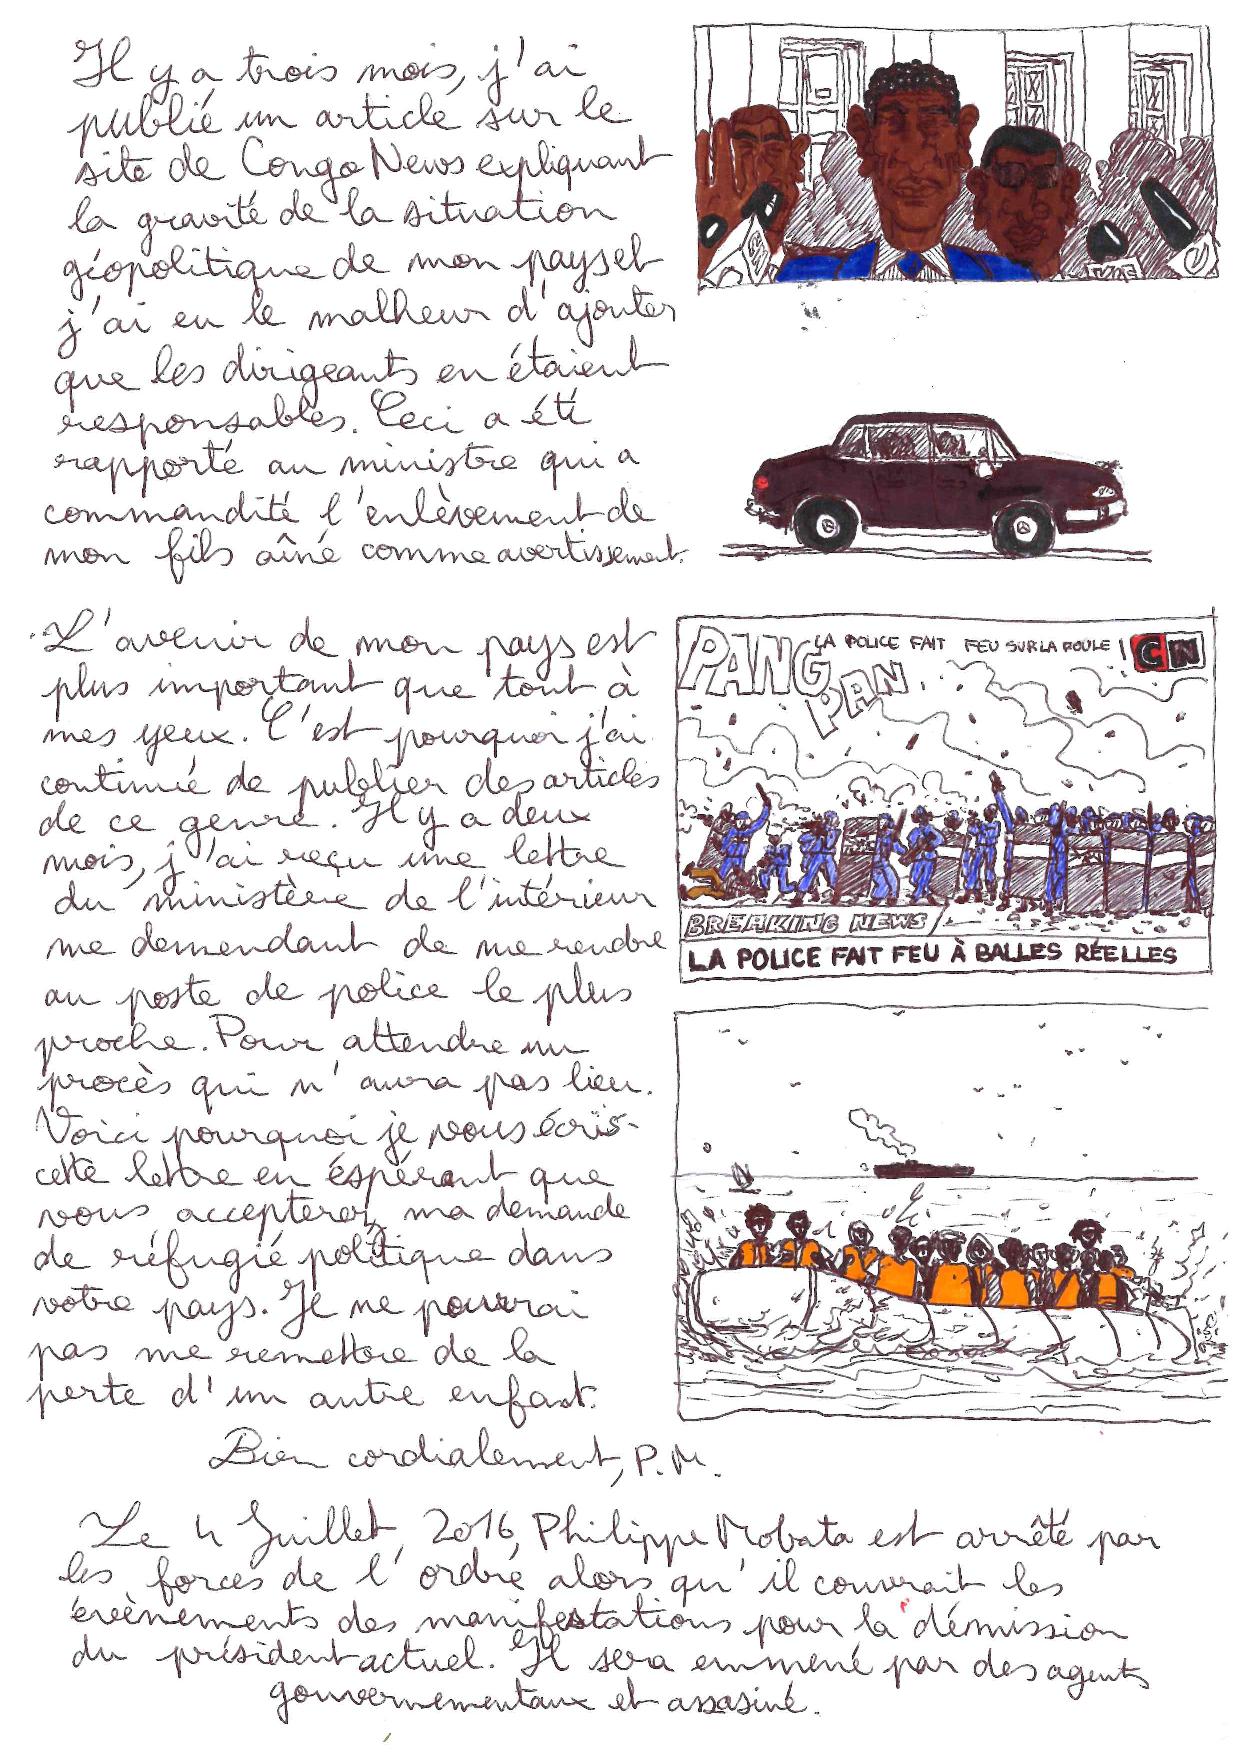 Il y a trois mois, j'ai
publié un article sur le
site de Congo News expliquant
la gravité de la situation
géopolitique de mon pays et
j'ai eu le malheur d'ajouter
que les dirigeants en étaient
responsables. Ceci a été
rapporté au ministre qui a
commandité l'enlèvement de
mon fils aîné comme avertissement.
L'avenir de mon pays est
plus important que tout à
mes yeux. C'est pourquoi j'ai
continué de publier des articles
de ce genre. Il y a deux
mois, j'ai reçu une lettre
du ministère de l'intérieur
me demendant de me rendre
au poste de police le plus
proche. Pour attendre un
procès qui n'aura pas lieu.
Voici pourquoi je vous écris
cette lettre en éspérant que
vous accepterez ma demande
de réfugié politique dans
votre pays. Je ne pourrai
pas me remettre de la
perte d'un autre enfant.
Bien cordialement, P.M.
PANG
PAN
LA POLICE FAIT FEU SUR LA FOULE !
CN
BREAKING NEWS
LA POLICE FAIT FEU À BALLES RÉELLES
Le 4 Juillet, 2016, Philippe Mobata est arrêté par
les forces de l'ordre alors qu'il couvrait les
évènements des manifestations pour la démission
du président actuel. Il sera emmené par des agents
gouvernementaux et assasiné.